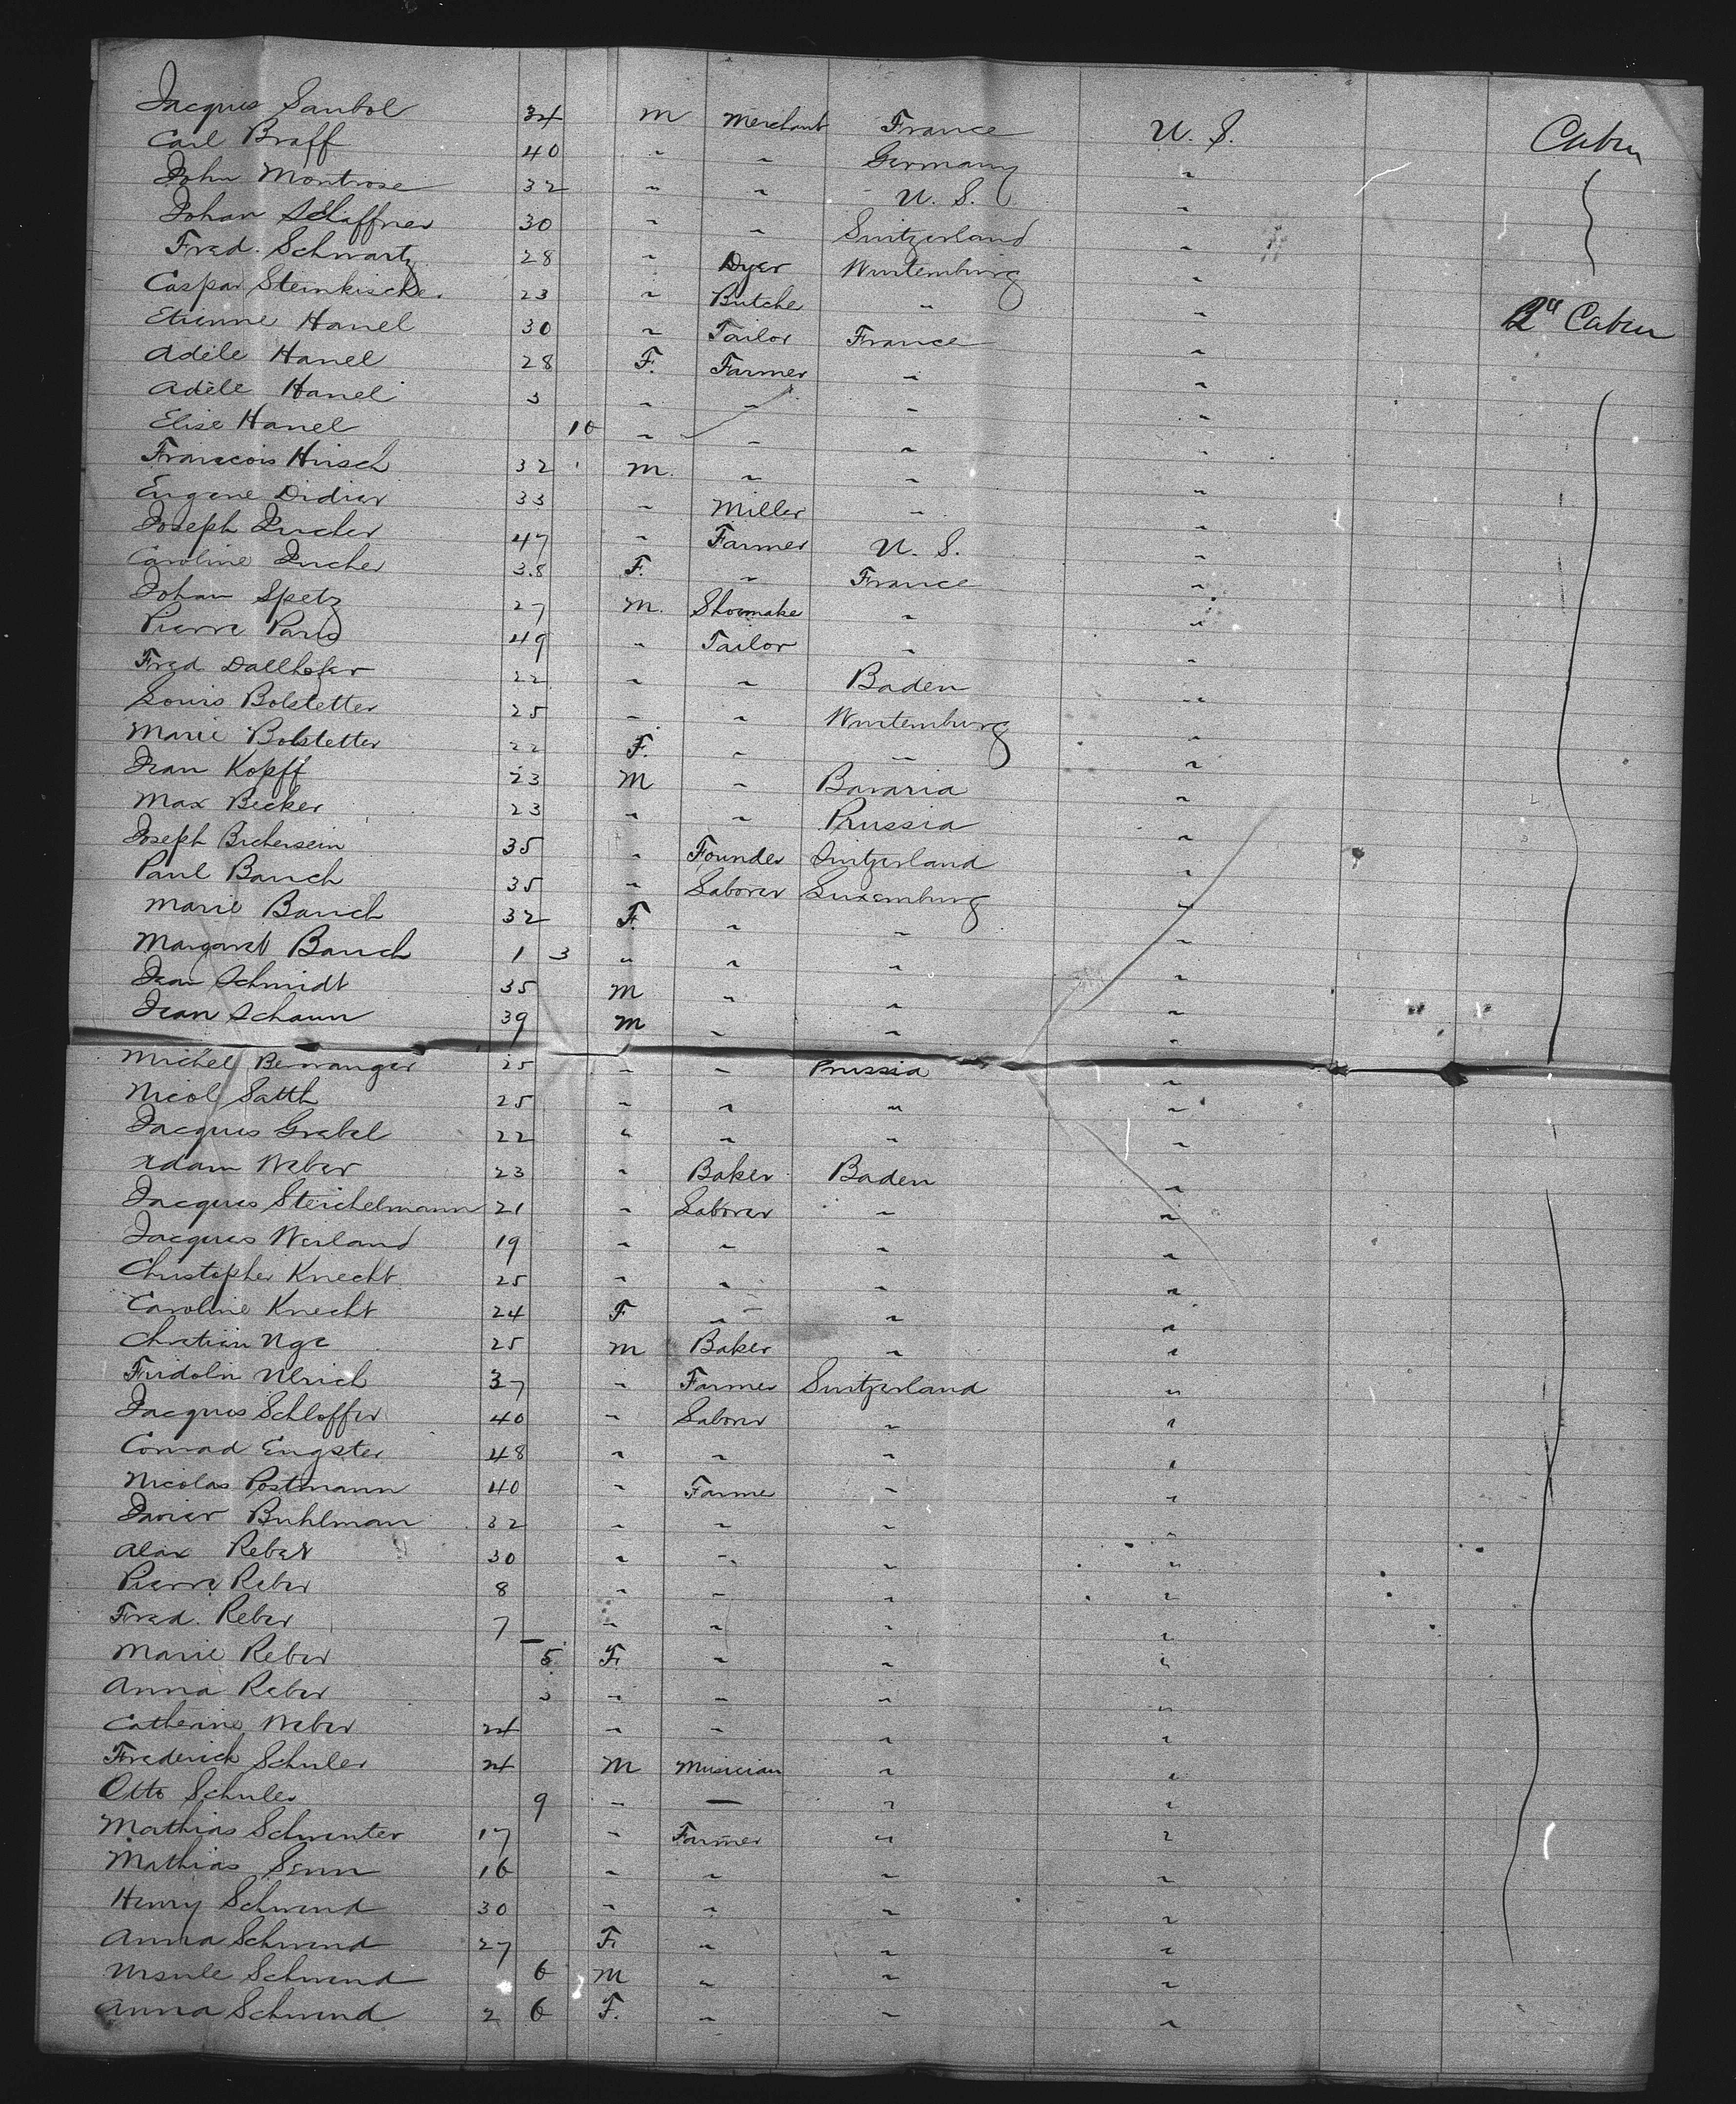 Jacques Saubol 34 M Merchant France U. S. Cabin
Carl Braff 40 " " Germany "
John Montrose 32 " " U. S. "
Johan Schaffner 30 " " Switzerland "
Fred. Schwartz 28 " Dyer Wurtemburg "
Caspar Steinkischer 23 " Butcher " " 2d Cabin
Etienne Hanel 30 " Tailor France "
Adèle Hanel 28 F. Farmer " "
Adèle Hanel 3 " " " "
Elise Hanel 10 " " " "
Francois Hirsch 32 M. " " "
Eugene Didier 33 " Miller " "
Joseph Zucher 47 " Farmer U. S. "
Caroline Zucher 38 F. " France "
Johan Spetz 27 M. Shoemake " "
Pierre Paris 49 " Tailor " "
Fred Dallhofer 22 " " Baden "
Louis Bolstetter 25 " " Wurtemburg "
Marie Bolstetter 22 F. " " "
Jean Kopff 23 M " Bavaria "
Max Becker 23 " " Prussia "
Joseph 35 " Founder Switzerland "
Paul Bauch 35 " Laborer Luxemburg "
Marie Bauch 32 F. " " "
Margaret Bauch 1 3 " " " "
Jean Schmidt 35 M " " "
Jean Schaun 39 M " " "
Michel Berwanger 25 " " Prussia "
Nicol Satth 25 " " " "
Jacques Grabel 22 " " " "
Adam Weber 23 " Baker Baden "
Jacques Steichelmann 21 " Laborer " "
Jacques Weiland 19 " " " "
Christopher Knecht 25 " " " "
Caroline Knecht 24 F " " "
Christian Nge 25 M Baker " "
Fridolin Ulrich 37 " Farmer Switzerland "
Jacques Schloffer 40 " Laborer " "
Conrad Engster 48 " " " "
Nicolas Postmann 40 " Farmer " "
Xavier Buhlman 32 " " " "
Alax Reber 30 " " " "
Pierre Reber 8 " " " "
Fred. Reber 7 " " " "
Marie Reber 5 F. " " "
Anna Reber 3 " " " "
Catherine Weber 24 " " " "
Frederick Schuler 24 M Musician " "
Otto Schuler 9 " — " "
Mathias Schwenter 17 " Farmer " "
Mathias Senn 16 " " " "
Henry Schwend 30 " " " "
Anna Schwend 27 F. " " "
Ursule Schwend 6 M " " "
Anna Schwend 2 6 F. " " "